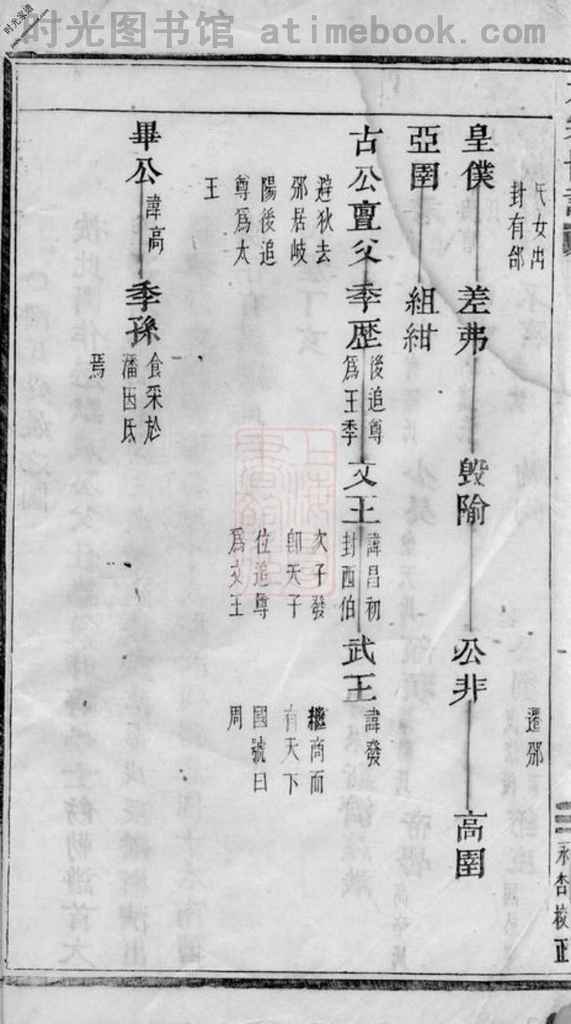 时光图书馆 atimebook.com
时光家谱
氏女出
封有邰
遷邠
皇僕 差弗 毁隃 公非 高圉
亞圉 組紺
古公亶父 季歷 文王 武王
避狄去
邠居岐
陽後追
尊為太
王
後追尊
為王季
諱昌初
封西伯
次子發
即天子
位追尊
為文王
諱發
繼商而
有天下
國號曰
周
畢公 諱高 季孫
食采於
潘因氏
焉
永杏校正